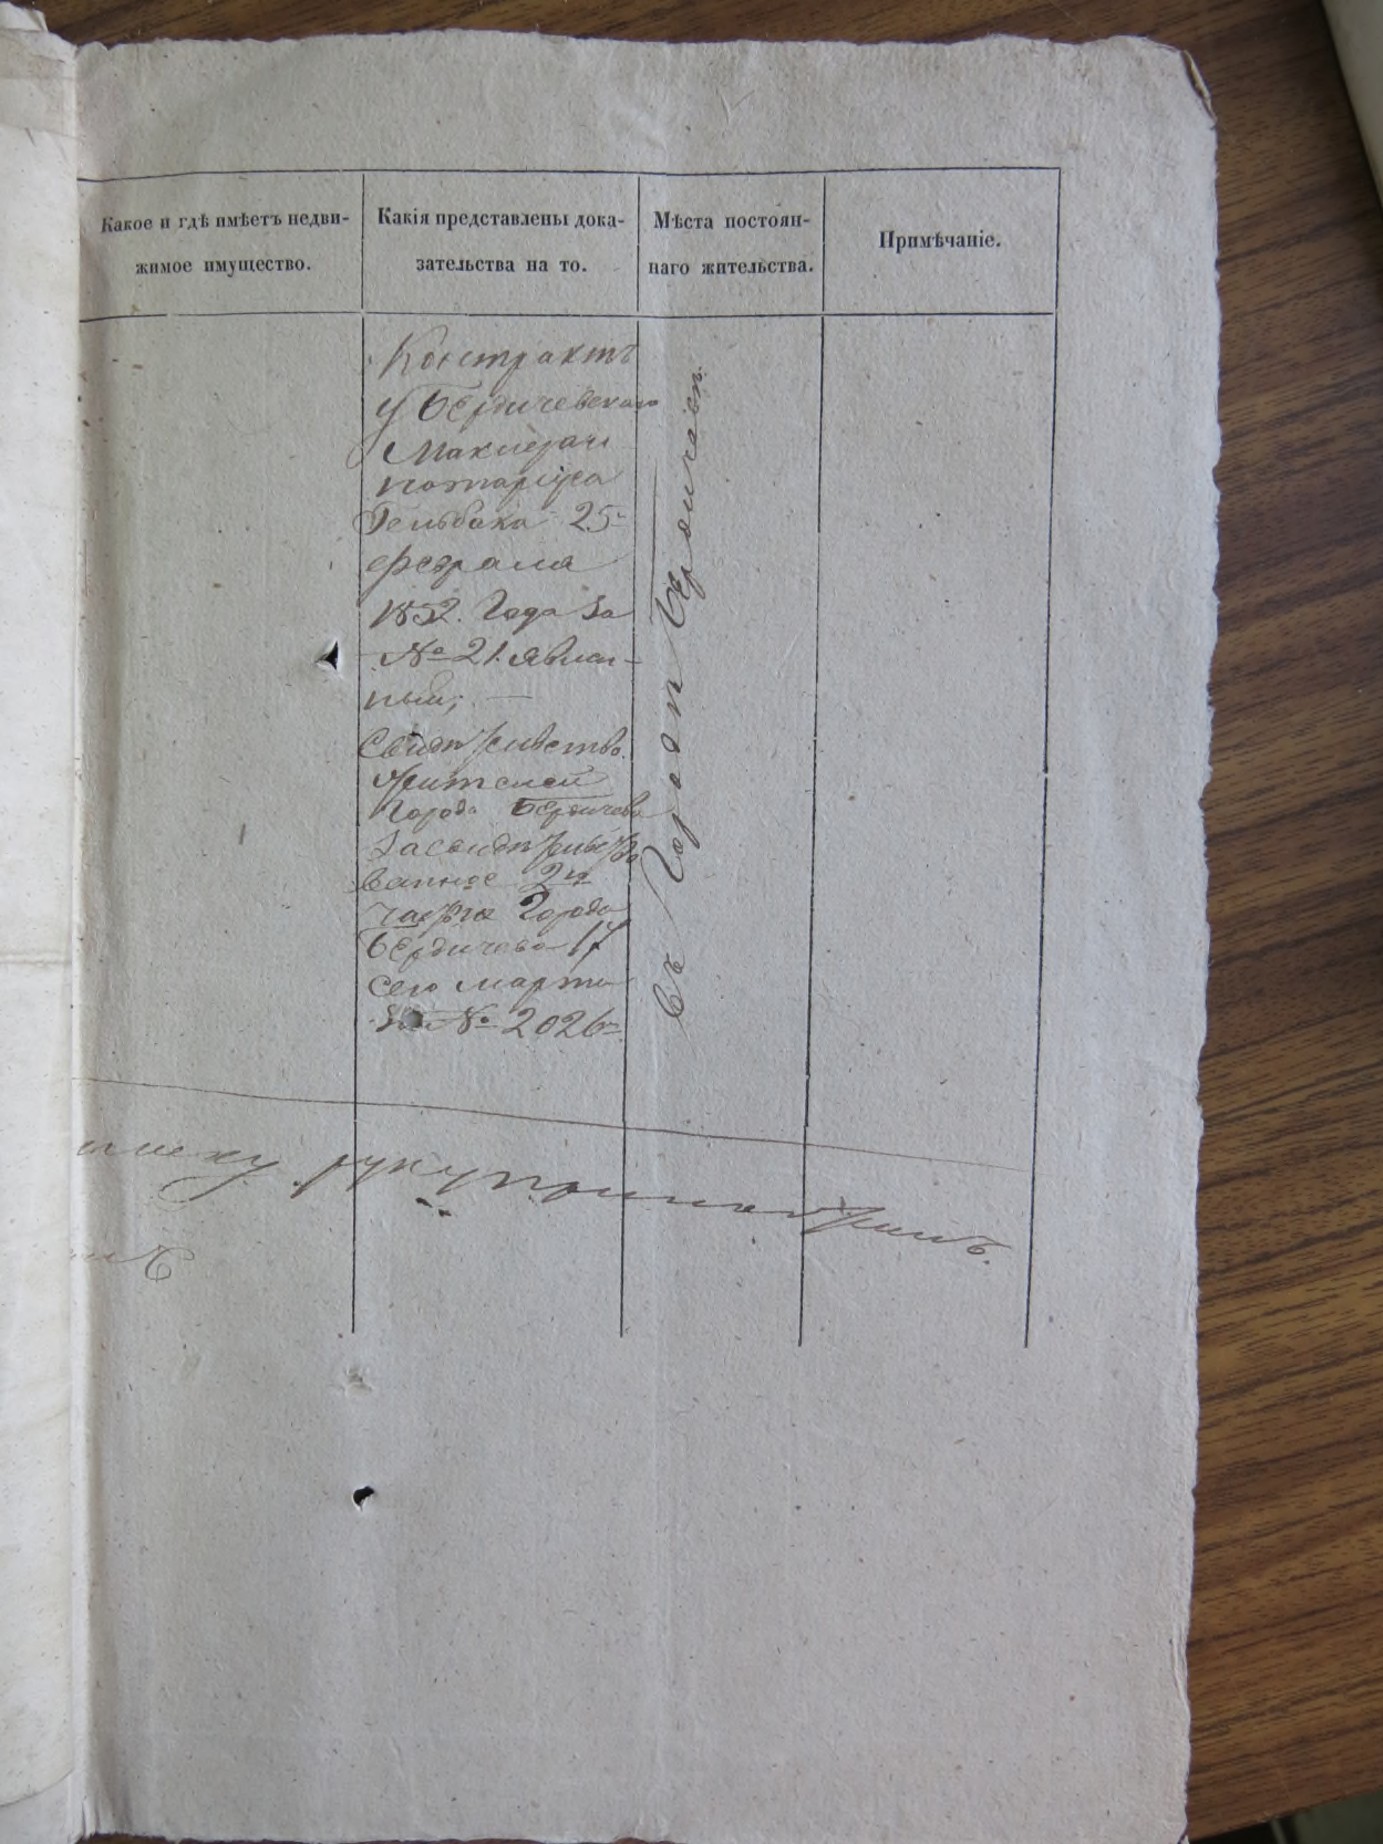 Какое и гдѣ имѣетъ недви-
жимое имущество.
Какія представлены дока-
зательства на то.
Мѣста постоян-
наго жительства.
Примѣчаніе.
Контрактъ
у Бердичевскаго
Маклера
нотаріуса
25
февраля
1852. Года за
№ 21. явлен-
ный; —
Свидѣтельство
Жителей
Города Бердичева
засвидѣтельство
ванное 2й
части Города
Бердичева 17
сего марта
за № 2026
Въ Городѣ Бердичевѣ